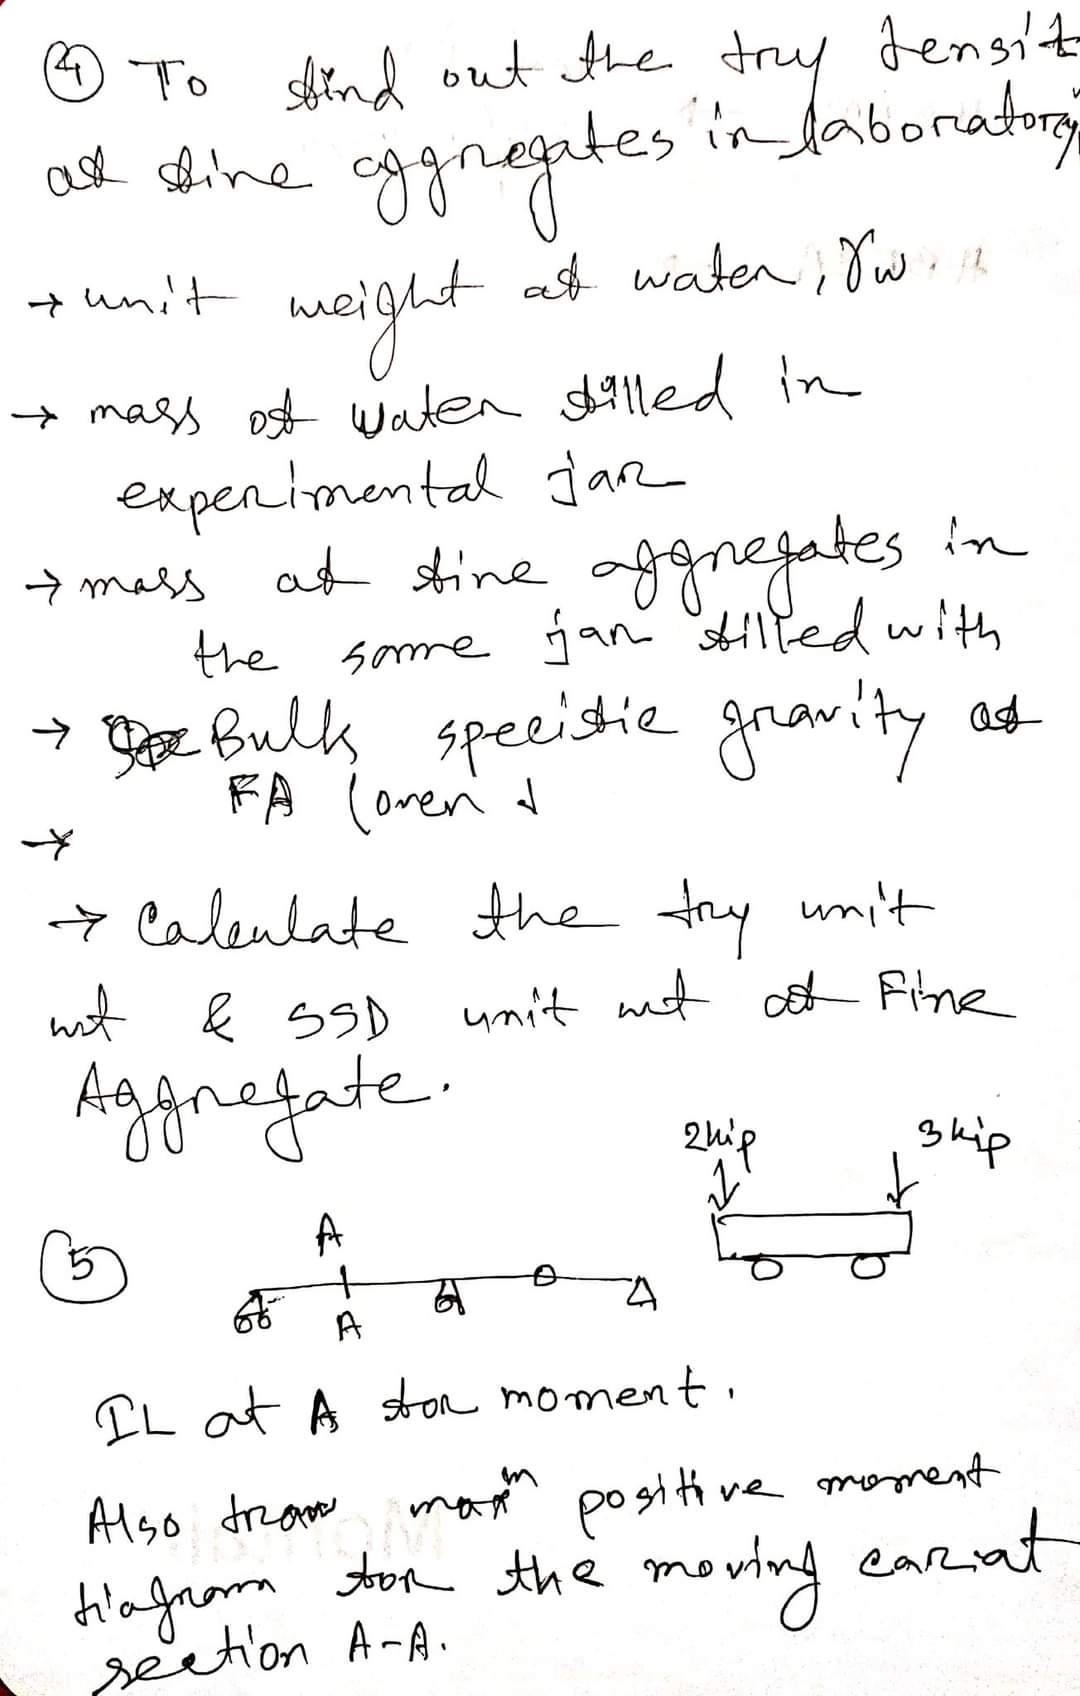 ④ To find out the dry densit
of fine aggregates in laboratory
→ unit weight of water, γw
→ mass of water filled in
experimental jar
→ mass of fine aggregates in
the same jar filled with
→ Bulk specific gravity of
FA (oven d
→
→ Calculate the dry unit
wt & SSD unit wt of Fine
Aggregate.
2kip 3kip
⑤ A
A
IL at A for moment.
Also draw maxm positive moment
diagram for the moving car at
section A-A.